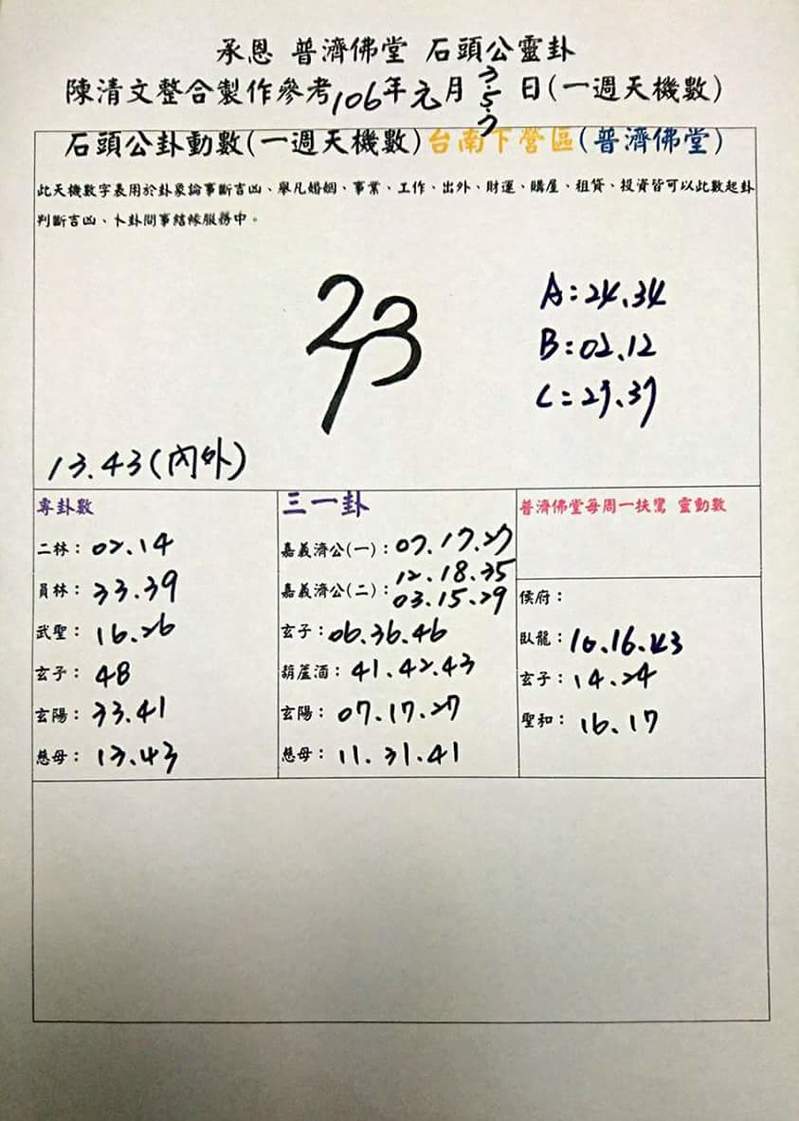 承恩 普濟佛堂 石頭公靈卦
陳清文整合製作參考106年元月3.5.7日(一週天機數)
石頭公卦動數(一週天機數)台南下營區(普濟佛堂)
此天機數字表用於卦象論事斷吉凶、舉凡婚姻、事業、工作、出外、財運、購屋、租貸、投資皆可以此數起卦
判斷吉凶、卜卦問事結緣服務中。
23
A:24.34
B:02.12
C:27.37
13.43(內外)
專卦數
二林: 02.14
員林: 33.39
武聖: 16.26
玄子: 48
玄陽: 33.41
慈母: 13.43
三一卦
嘉義濟公(一):07.17.27
嘉義濟公(二):12.18.35
03.15.29
玄子:06.36.46
葫蘆酒:41.42.43
玄陽:07.17.27
慈母:11.31.41
普濟佛堂每周一扶鸞 靈動數
侯府:
臥龍:10.16.43
玄子:14.24
聖和:16.17